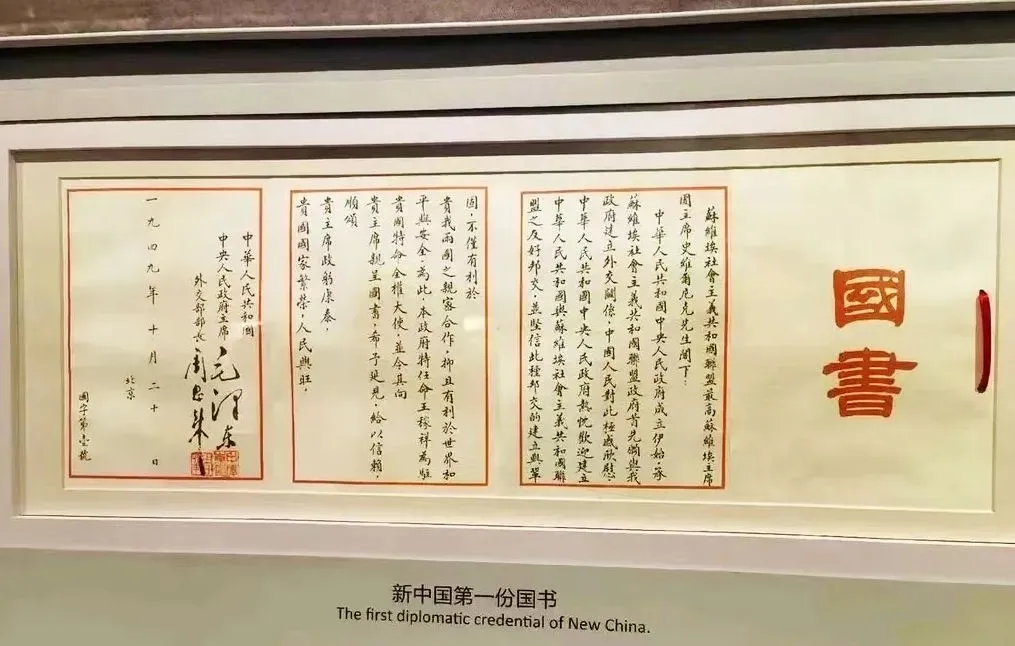 國書
蘇維埃社會主義共和國聯盟最高蘇維埃主席
團主席史維爾尼克先生閣下：
中華人民共和國中央人民政府成立伊始，承
蘇維埃社會主義共和國聯盟政府首先願與我
政府建立外交關係，中國人民對此極感欣慰。
中華人民共和國中央人民政府熱忱歡迎建立
中華人民共和國與蘇維埃社會主義共和國聯
盟之友好邦交，並堅信此種邦交的建立與鞏
固，不僅有利於
貴我兩國之親密合作，抑且有利於世界和
平與安全。為此，本政府特任命王稼祥為駐
貴國特命全權大使，並令其向
貴主席親呈國書，希予延見，給以信賴，
順頌
貴主席政躬康泰，
貴國國家繁榮，人民興旺。
中華人民共和國
中央人民政府主席 毛澤东
外交部部長 周恩来
一九四九年十月二十日
北京
國字第壹號
新中国第一份国书
The first diplomatic credential of New China.